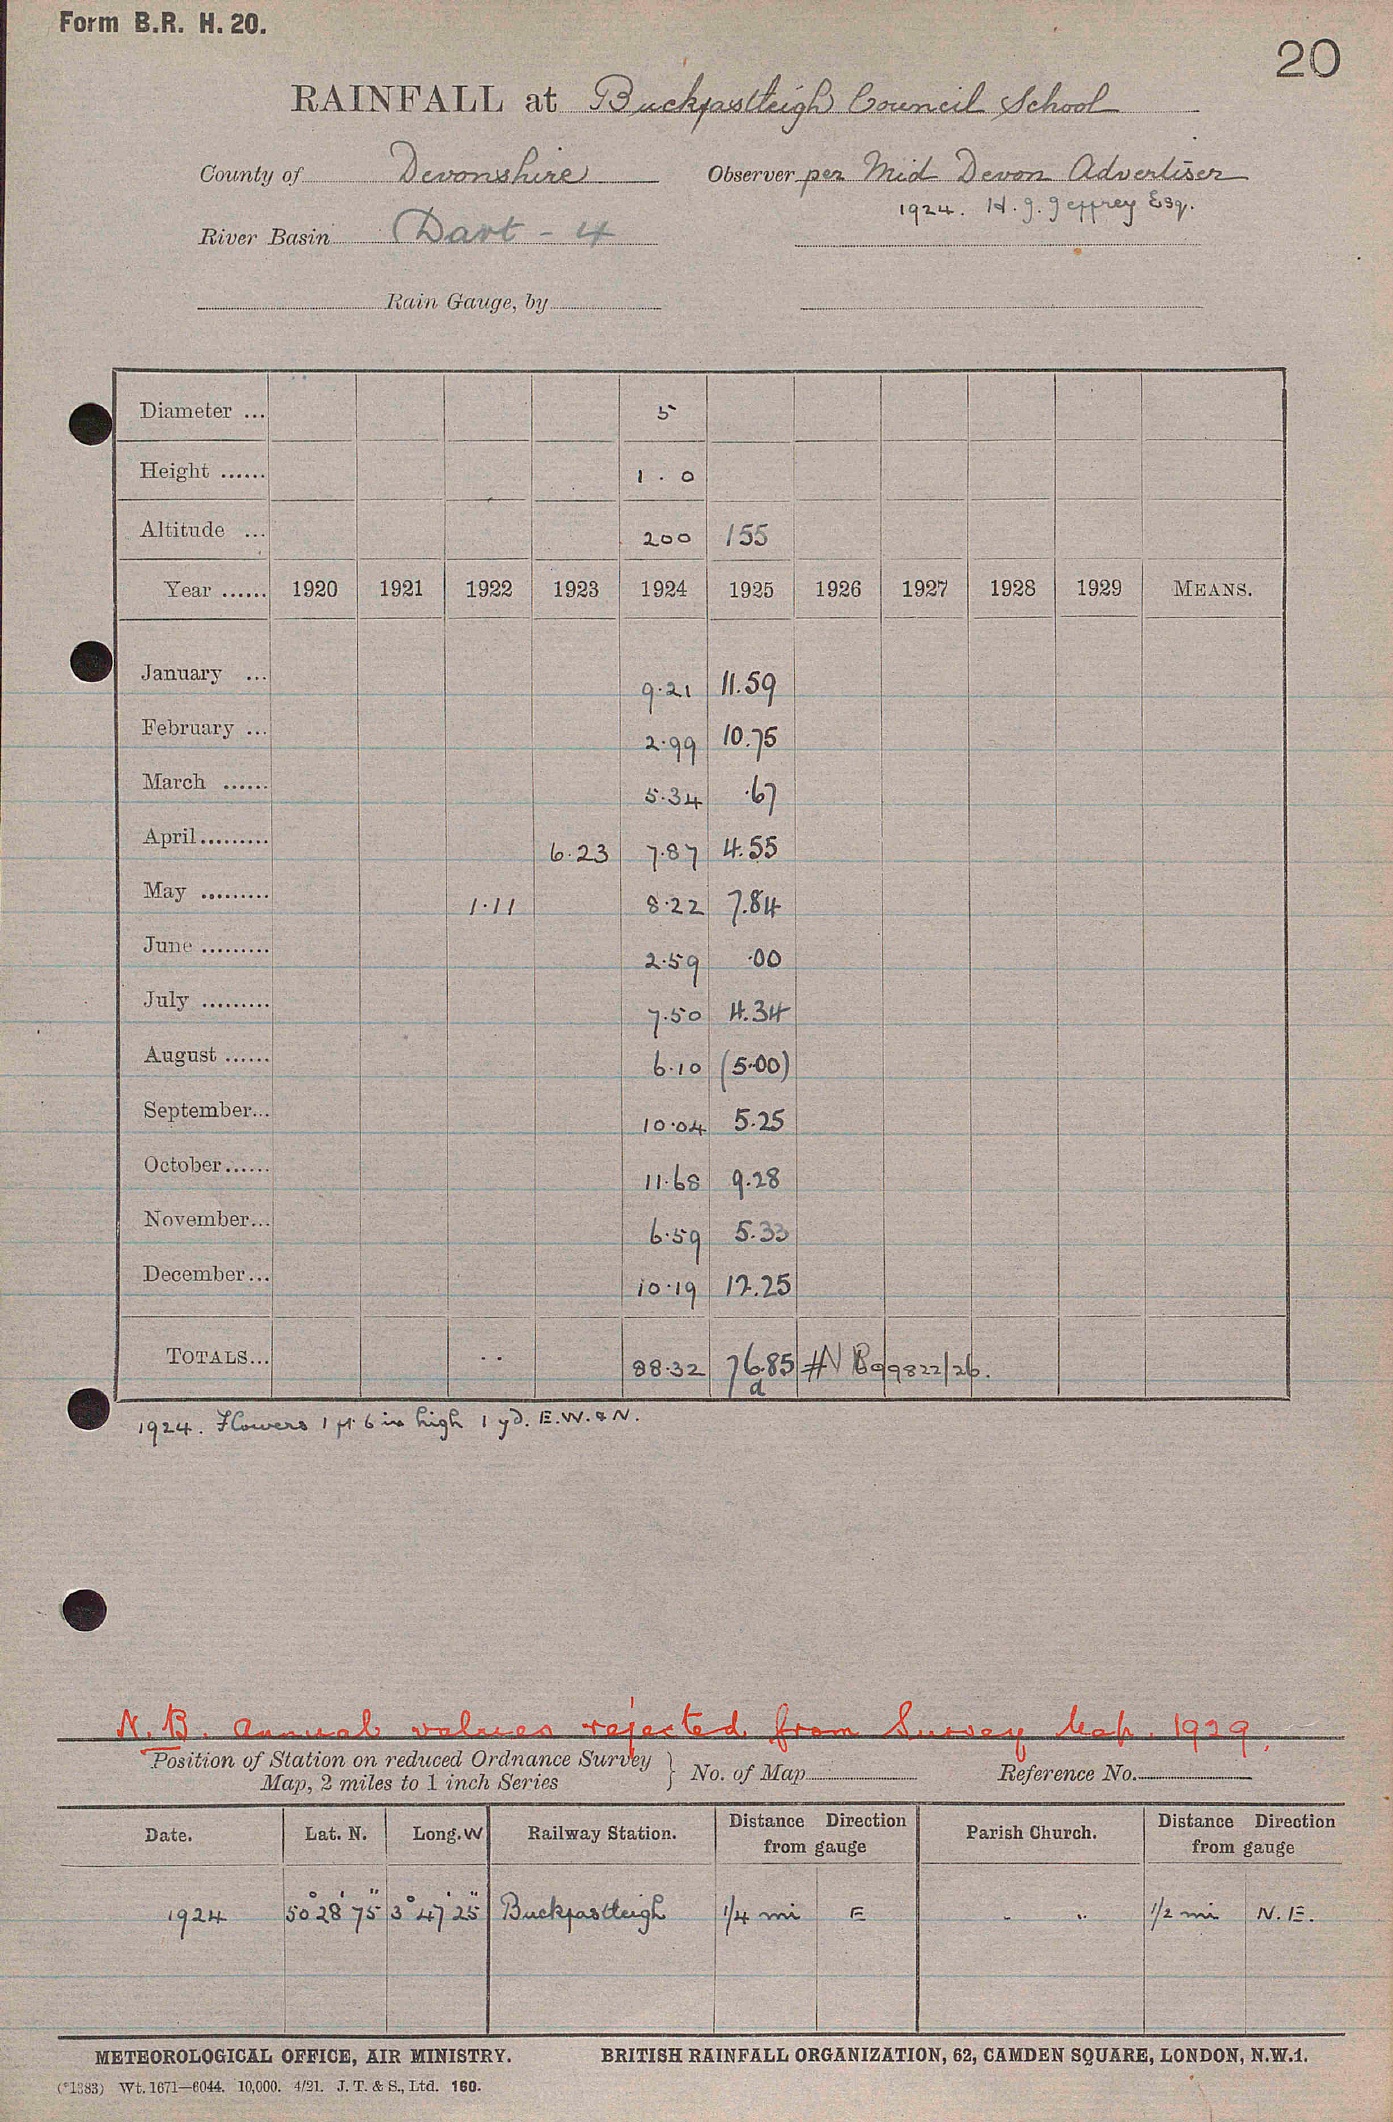 Form B.R. H. 20.
20
RAINFALL at Buckfastleigh Council School
County of Devonshire Observer per Mid Devon Advertiser
1924. H. J. Jeffrey Esq.
River Basin Dart - 4
Rain Gauge, by
Diameter ... 5
Height ...... 1 . 0
Altitude ... 200 155
Year ...... 1920 1921 1922 1923 1924 1925 1926 1927 1928 1929 MEANS.
January ... 9.21 11.59
February ... 2.99 10.75
March ...... 5.34 .67
April......... 6.23 7.87 4.55
May ......... 1.11 8.22 7.84
June ......... 2.59 .00
July ......... 7.50 4.34
August ...... 6.10 (5.00)
September... 10.04 5.25
October...... 11.68 9.28
November... 6.59 5.33
December... 10.19 12.25
TOTALS... 88.32 76.85 99822/26.
a
1924. Flowers 1 ft 6 in high 1 yd. E.W. & N.
N.B. Annual values rejected from Survey Map. 1929.
Position of Station on reduced Ordnance Survey
Map, 2 miles to 1 inch Series } No. of Map Reference No.
Date. Lat. N. Long. W Railway Station. Distance Direction from gauge Parish Church. Distance Direction from gauge
1924 50° 28' 75" 3° 47' 25" Buckfastleigh 1/4 mi E " " 1/2 mi N.E.
METEOROLOGICAL OFFICE, AIR MINISTRY. BRITISH RAINFALL ORGANIZATION, 62, CAMDEN SQUARE, LONDON, N.W.1.
(*1383) Wt. 1671—6044. 10,000. 4/21. J. T. & S., Ltd. 160.